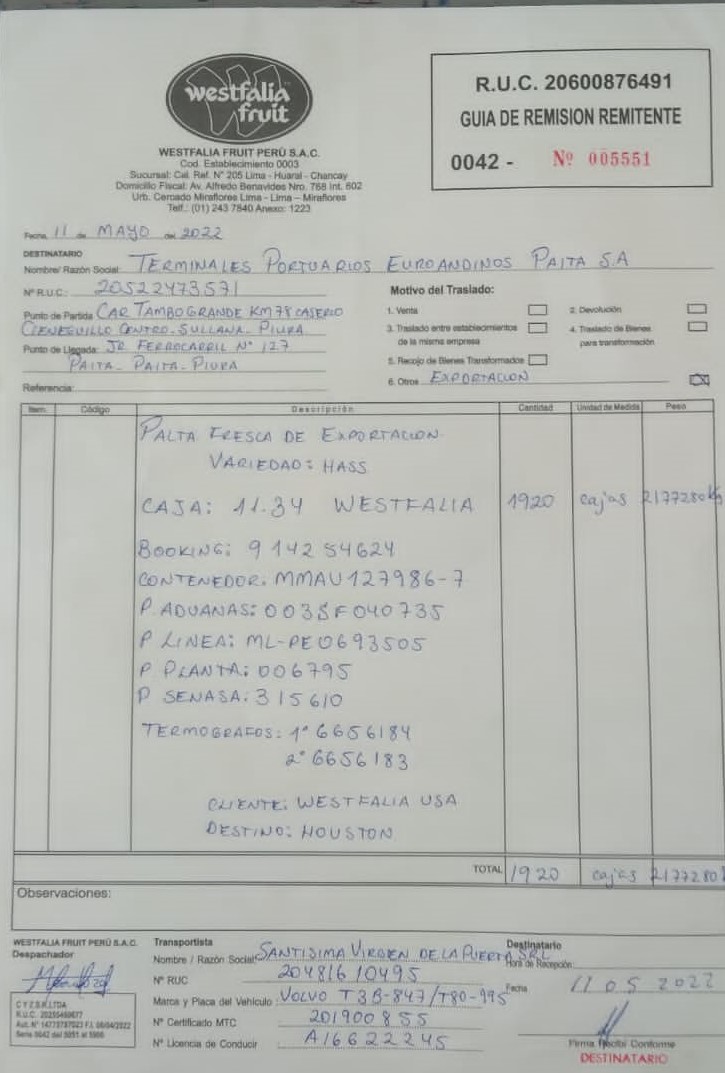 westfalia
fruit
WESTFALIA FRUIT PERÚ S.A.C.
Cod. Establecimiento 0003
Sucursal: Cal. Ref. N° 205 Lima - Huaral - Chancay
Domicilio Fiscal: Av. Alfredo Benavides Nro. 768 Int. 602
Urb. Cercado Miraflores Lima - Lima – Miraflores
Telf.: (01) 243 7840 Anexo: 1223
R.U.C. 20600876491
GUIA DE REMISION REMITENTE
0042 - Nº 005551
Fecha, 11 de MAYO del 2022
DESTINATARIO
Nombre/ Razón Social: TERMINALES PORTUARIOS EUROANDINOS PAITA S.A
N° R.U.C.: 20522473571
Punto de Partida CAR TAMBOGRANDE KM 78 CASERIO
CIENEGUILLO CENTRO - SULLANA - PIURA
Punto de Llegada: JR. FERROCARRIL N° 127
PAITA - PAITA - PIURA
Referencia:
Motivo del Traslado:
1. Venta
2. Devolución
3. Traslado entre establecimientos
de la misma empresa
4. Traslado de Bienes
para transformación
5. Recojo de Bienes Transformados
6. Otros EXPORTACION
Item. Código Descripción Cantidad Unidad de Medida Peso
PALTA FRESCA DE EXPORTACION
VARIEDAD: HASS
CAJA: 11.34 WESTFALIA 1920 cajas 2177280 Kg
BOOKING: 914254624
CONTENEDOR: MMAU127986-7
P. ADUANAS: 003SF040735
P LINEA: ML-PE0693505
P PLANTA: 006795
P SENASA: 315610
TERMOGRAFOS: 1° 6656184
2° 6656183
CLIENTE: WESTFALIA USA
DESTINO: HOUSTON
TOTAL 1920 cajas 2177280
Observaciones:
WESTFALIA FRUIT PERÚ S.A.C.
Despachador
CYZSRLTDA
R.U.C. 20255489677
Aut. N° 14775787023 F.I. 06/04/2022
Serie 0042 del 5051 al 5900
Transportista
Nombre / Razón Social SANTISIMA VIRGEN DE LA PUERTA SRL
N° RUC 20481610495
Marca y Placa del Vehículo: VOLVO T3B-847/T80-995
N° Certificado MTC 201900855
N° Licencia de Conducir A16622245
Destinatario
Hora de Recepción:
Fecha 11 05 2022
Firma Recibí Conforme
DESTINATARIO